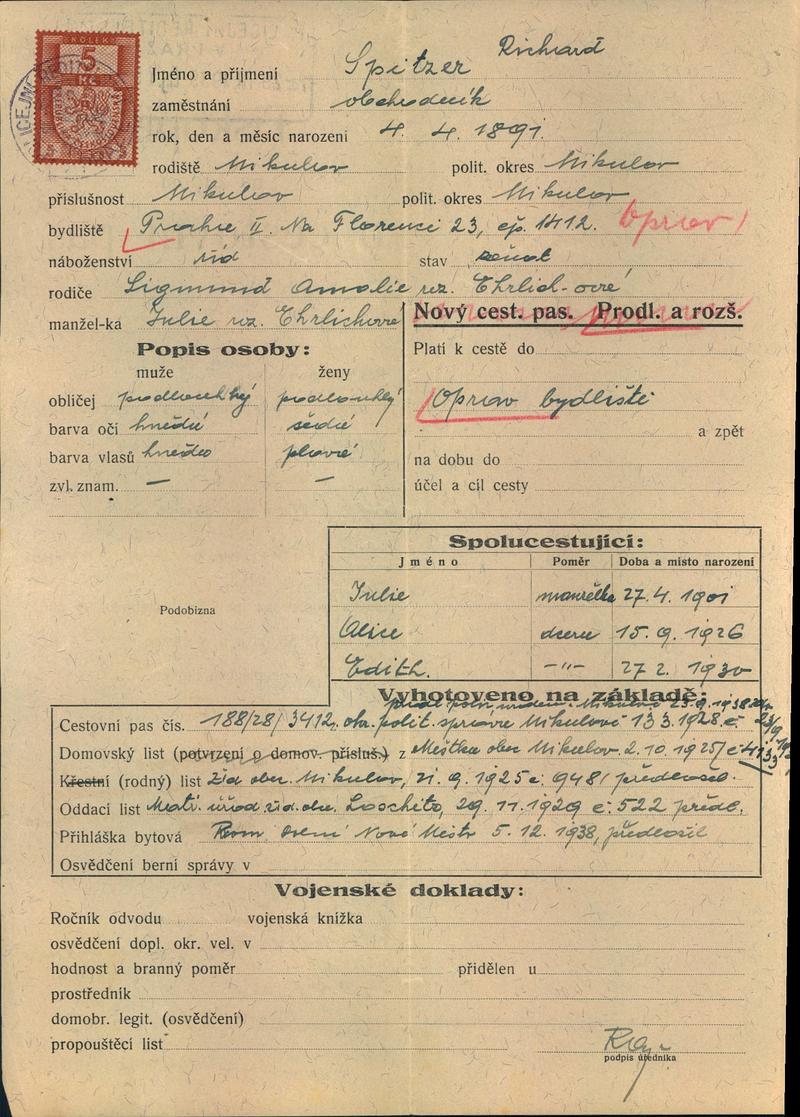 KOLEK
5
Kč
Jméno a příjmení Spitzer Richard
zaměstnání obchodník
rok, den a měsíc narození 4. 4. 1891.
rodiště Mikulov polit. okres Mikulov
příslušnost Mikulov polit. okres Mikulov
bydliště Praha II. Na Florenci 23, čp. 1412. Oprav!
náboženství žid stav ženat
rodiče Sigmund Amalie roz. Ehrlich-ové
manžel-ka Julie roz. Ehrlichové
Nový cest. pas. Prodl. a rozš.
Popis osoby:
muže ženy
Platí k cestě do
obličej podlouhlý podlouhlý
Oprav bydliště
barva očí hnědé šedé
a zpět
barva vlasů hnědé plavé
na dobu do
zvl. znam. — —
účel a cíl cesty
Spolucestující:
Jméno Poměr Doba a místo narození
Podobizna
Julie manželka 27. 4. 1901
Alice dcera 15. 9. 1926
Edith. -"- 27 2. 1930
Vyhotoveno na základě:
Cestovní pas čís. 188/28/3412, okr. polit. správa Mikulově 13 3. 1928 č.
Domovský list (potvrzení o domov. přísluš.) z Městka obec Mikulov. 2. 10. 1925/č 4133
Křestní (rodný) list Žid. obec. Mikulov, 21. 9. 1925 č. 948/ předložil.
Oddací list Matr. úřad žid. obce. Loschitz, 29. 11. 1929 č. 522 předl.
Přihláška bytová Nové Město 5. 12. 1938, předložil
Osvědčení berní správy v
Vojenské doklady:
Ročník odvodu vojenská knížka
osvědčení dopl. okr. vel. v
hodnost a branný poměr přidělen u
prostředník
domobr. legit. (osvědčení)
propouštěcí list
podpis úředníka